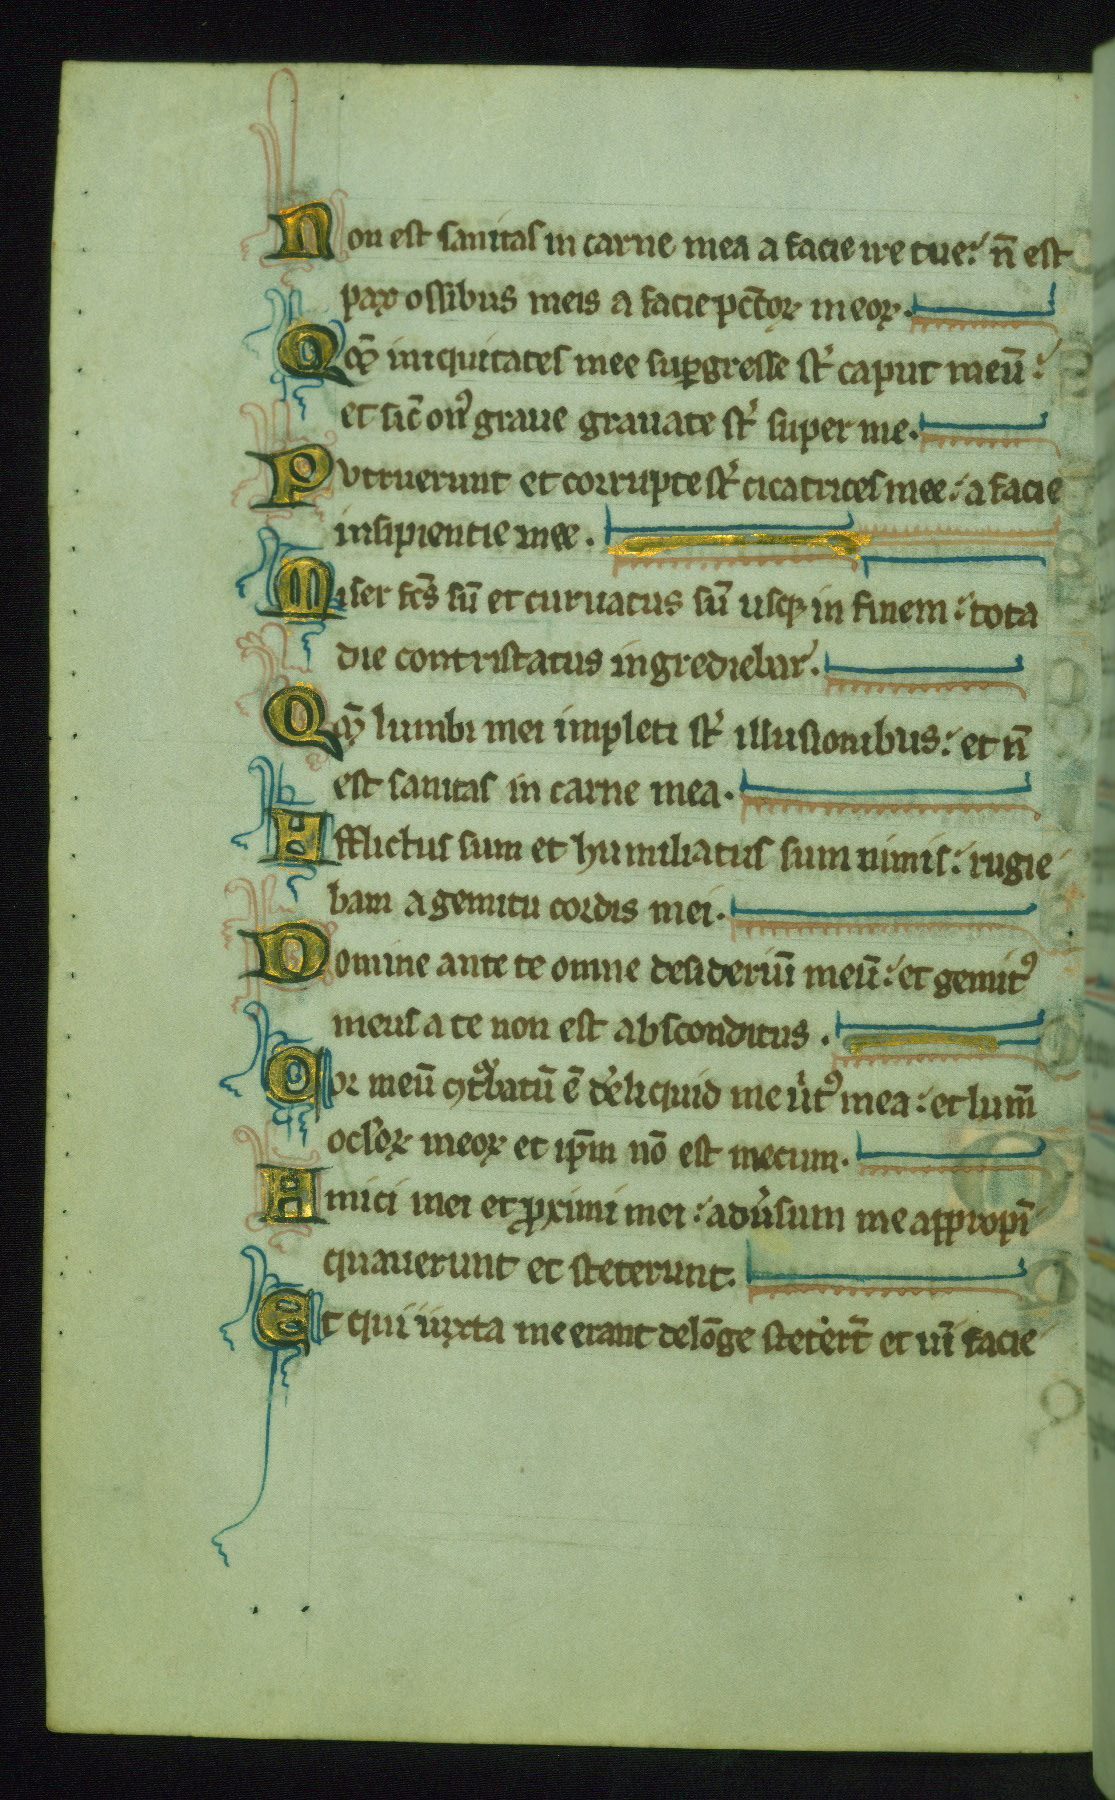 Non est sanitas in carne mea a facie ire tue: n̄ est
pax ossibus meis a facie pct̄oꝝ meoꝝ.
Qm̄ iniquitates mee suꝑgresse st̄ caput meū:
et sic̄ onꝰ graue grauate st̄ super me.
Putruerunt et corrupte st̄ cicatrices mee: a facie
insipientie mee.
Miser fc̄s sū et curuatus sū usqꝫ in finem: tota
die contristatus ingrediebar.
Qm̄ lumbi mei impleti st̄ illusionibus: et n̄
est sanitas in carne mea.
Afflictus sum et humiliatus sum nimis: rugie
bam a gemitu cordis mei.
Domine ante te omne desideriū meū: et gemitꝰ
meus a te non est absconditus.
Cor meū ꝯtᵃbatū ē de͛liquid me u͛tꝰ mea: et lum̄
oclo͛ꝝ meoꝝ et ip̄m nō est mecum.
Amici mei et ꝓximi mei: adu͛sum me appropī
quauerunt et steterunt.
Et qui iuxta me erant delōge stete͛rt̄ et uī facie